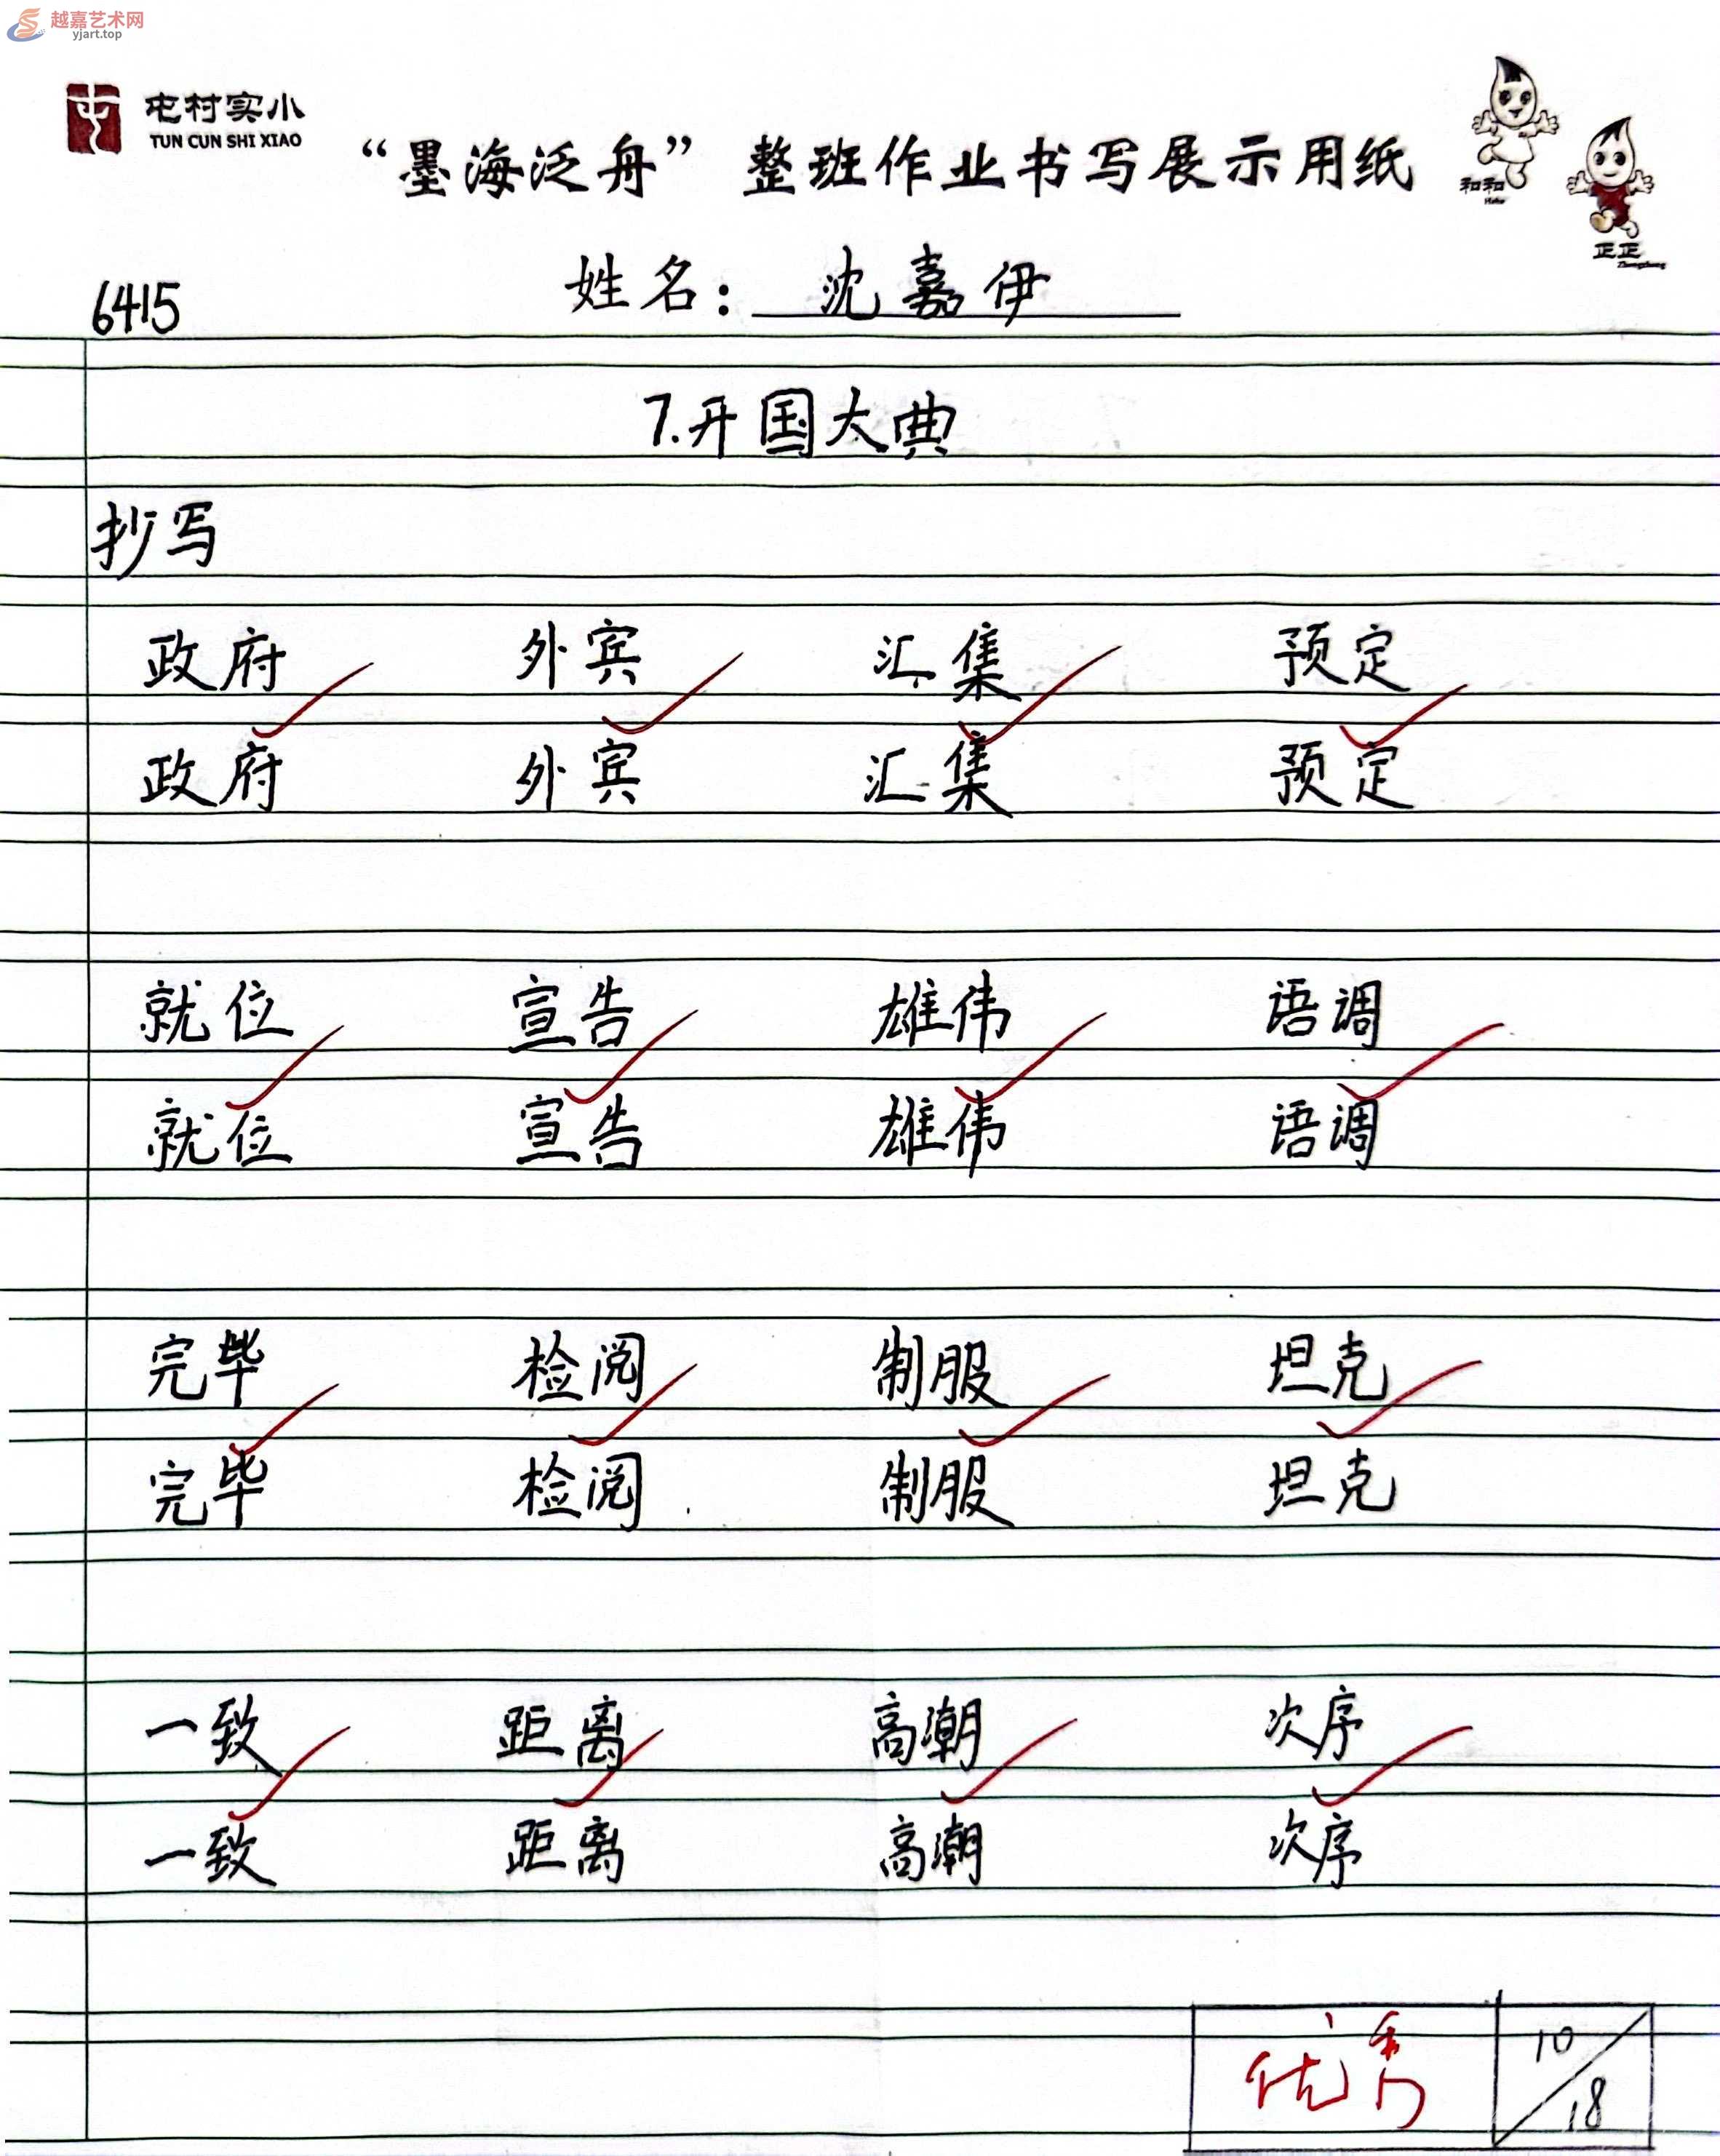 越嘉艺术网
yjart.top
屯村实小
TUN CUN SHI XIAO
“墨海泛舟”整班作业书写展示用纸
和和
Hehe
正正
Zhengzheng
6415 姓名：沈嘉伊
7.开国大典
抄写
政府 外宾 汇集 预定
政府 外宾 汇集 预定
就位 宣告 雄伟 语调
就位 宣告 雄伟 语调
完毕 检阅 制服 坦克
完毕 检阅 制服 坦克
一致 距离 高潮 次序
一致 距离 高潮 次序
优秀 10/18